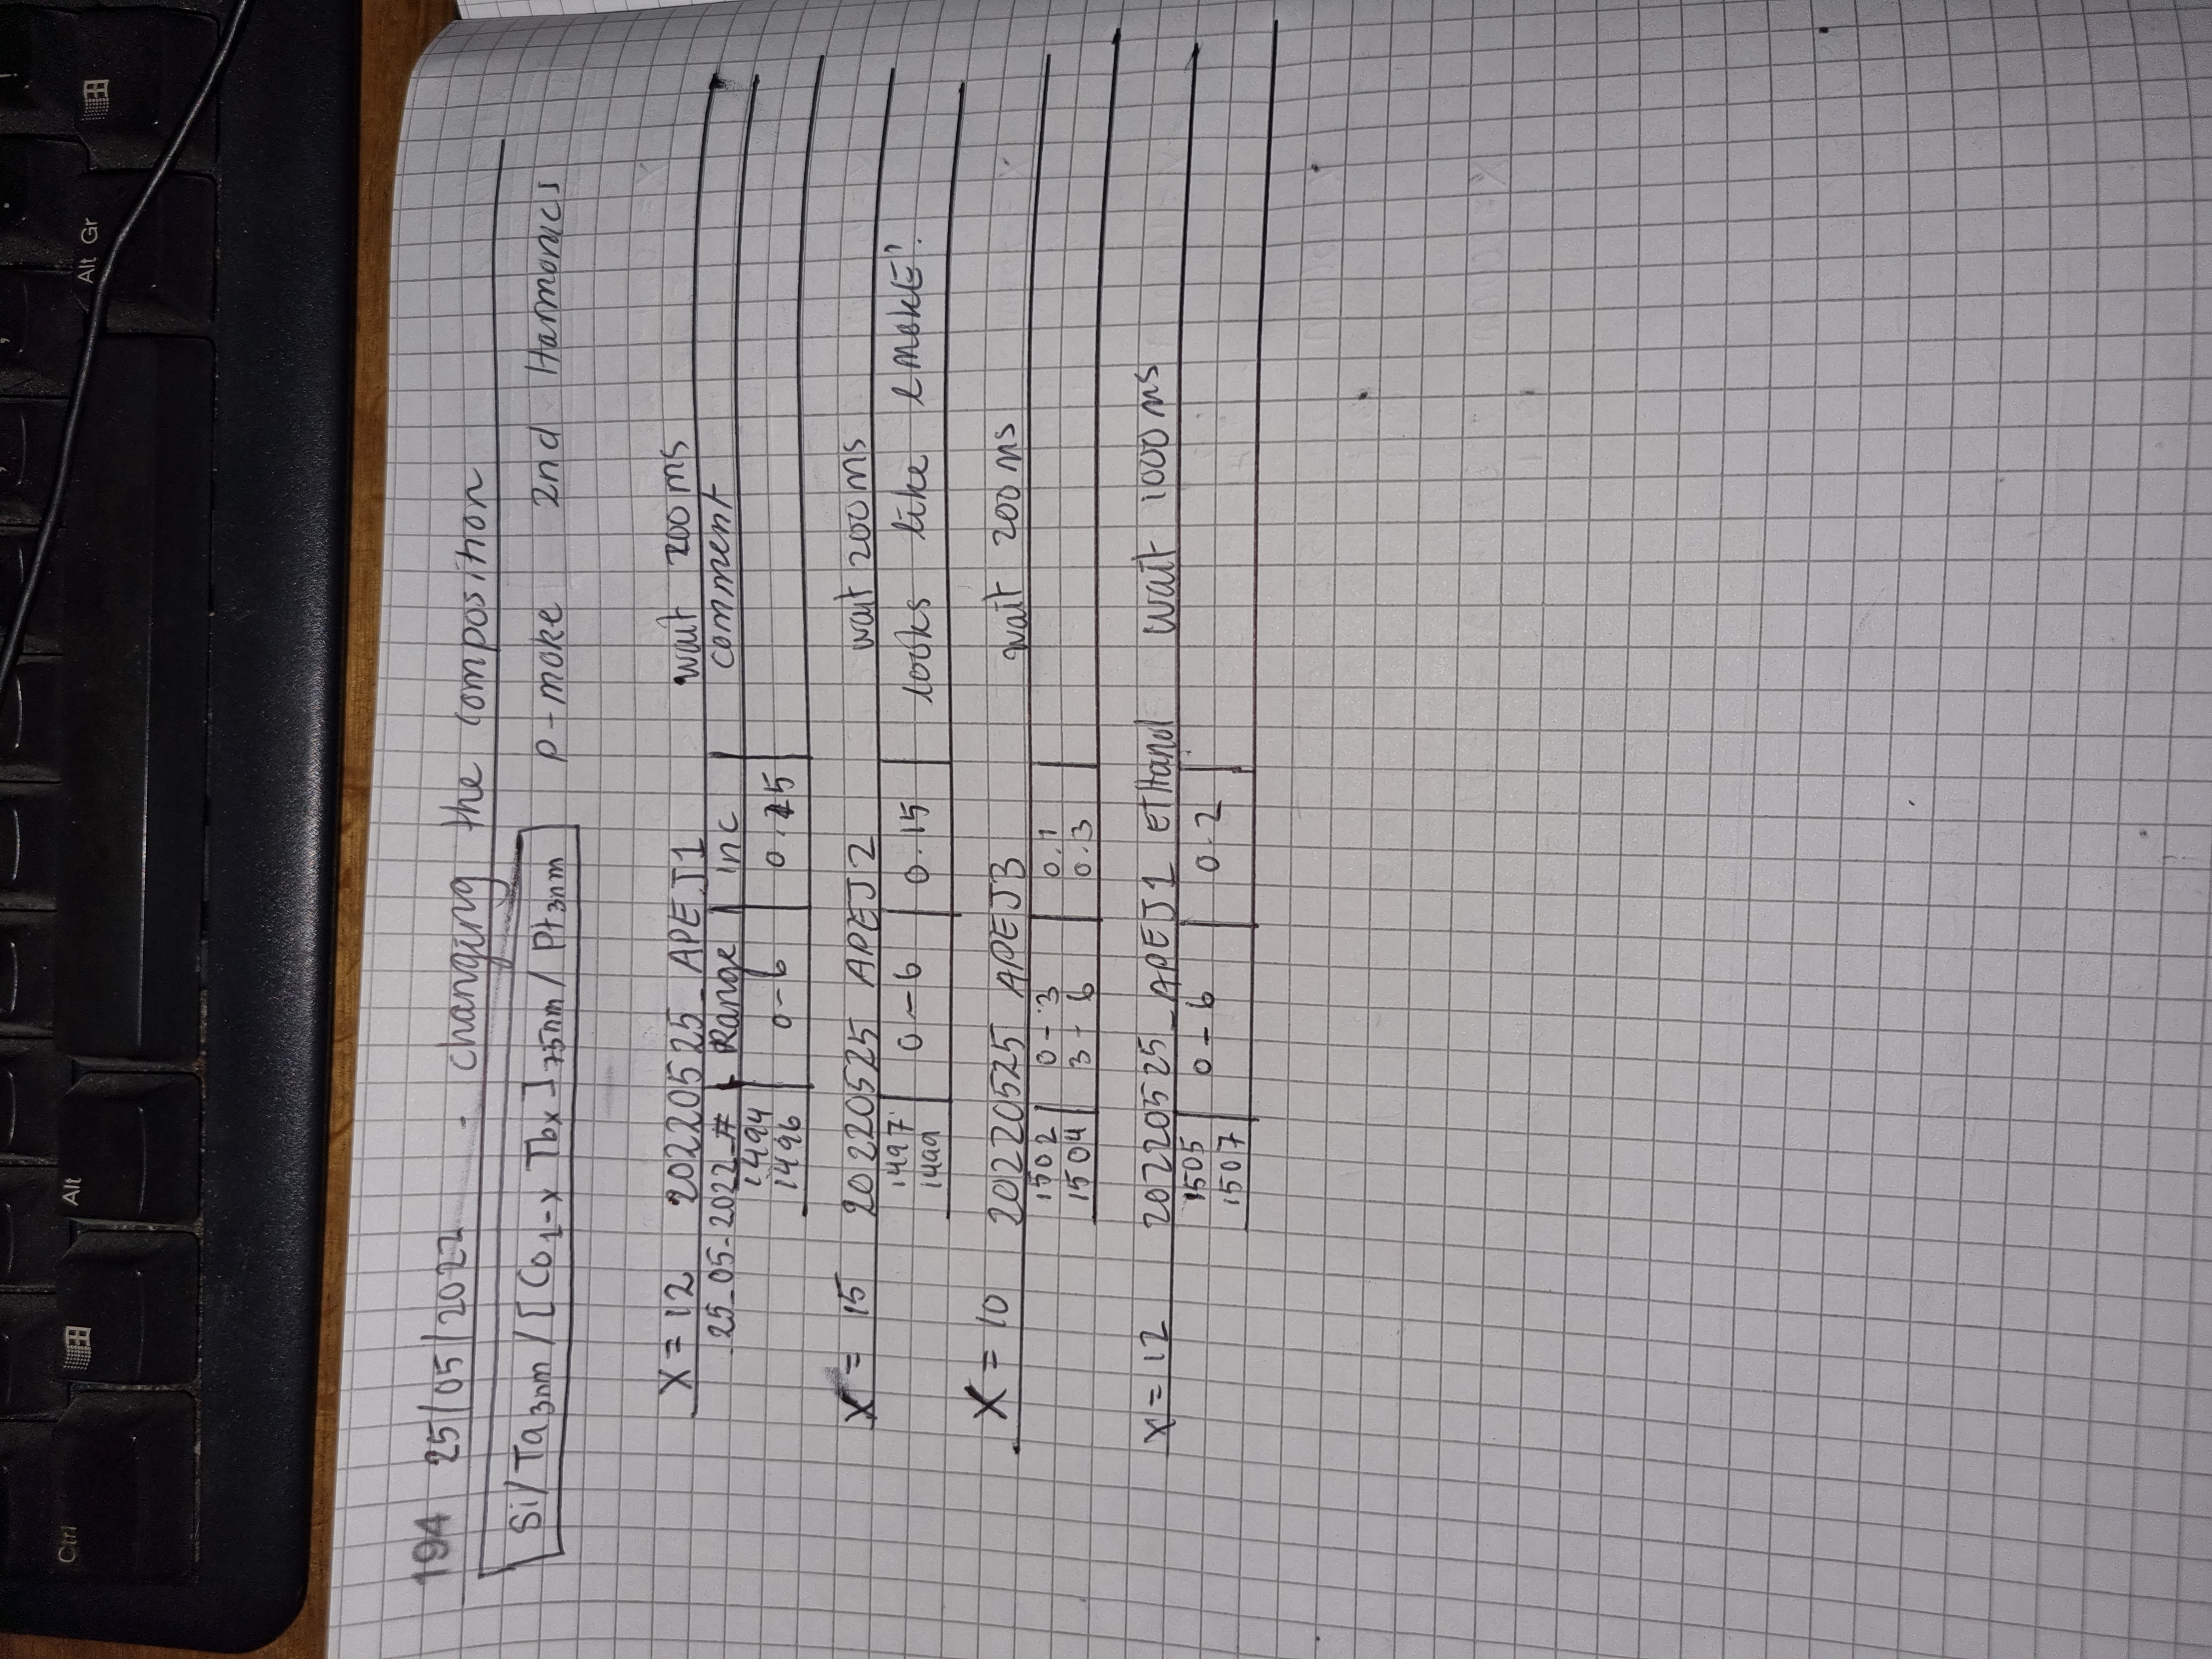 Ctrl Alt Alt Gr
194 25/05/2022 - changing the composition
Si/Ta3nm/[Co1-x Tbx]75nm/Pt3nm p-moke 2nd Harmonics
X = 12 20220525_APEJ1 wait 200ms
25_05-2022_# Range Inc comment
1494
1496 0-6 0.15
X = 15 20220525 APEJ2 wait 200ms
1497 0-6 0.15 looks like lMOKE?
1499
X = 10 20220525 APEJ3 wait 200ms
1502 0-3 0.1
1504 3-6 0.3
X = 12 20220525_APEJ1 EtHanol wait 1000ms
1505 0-6 0.2
1507